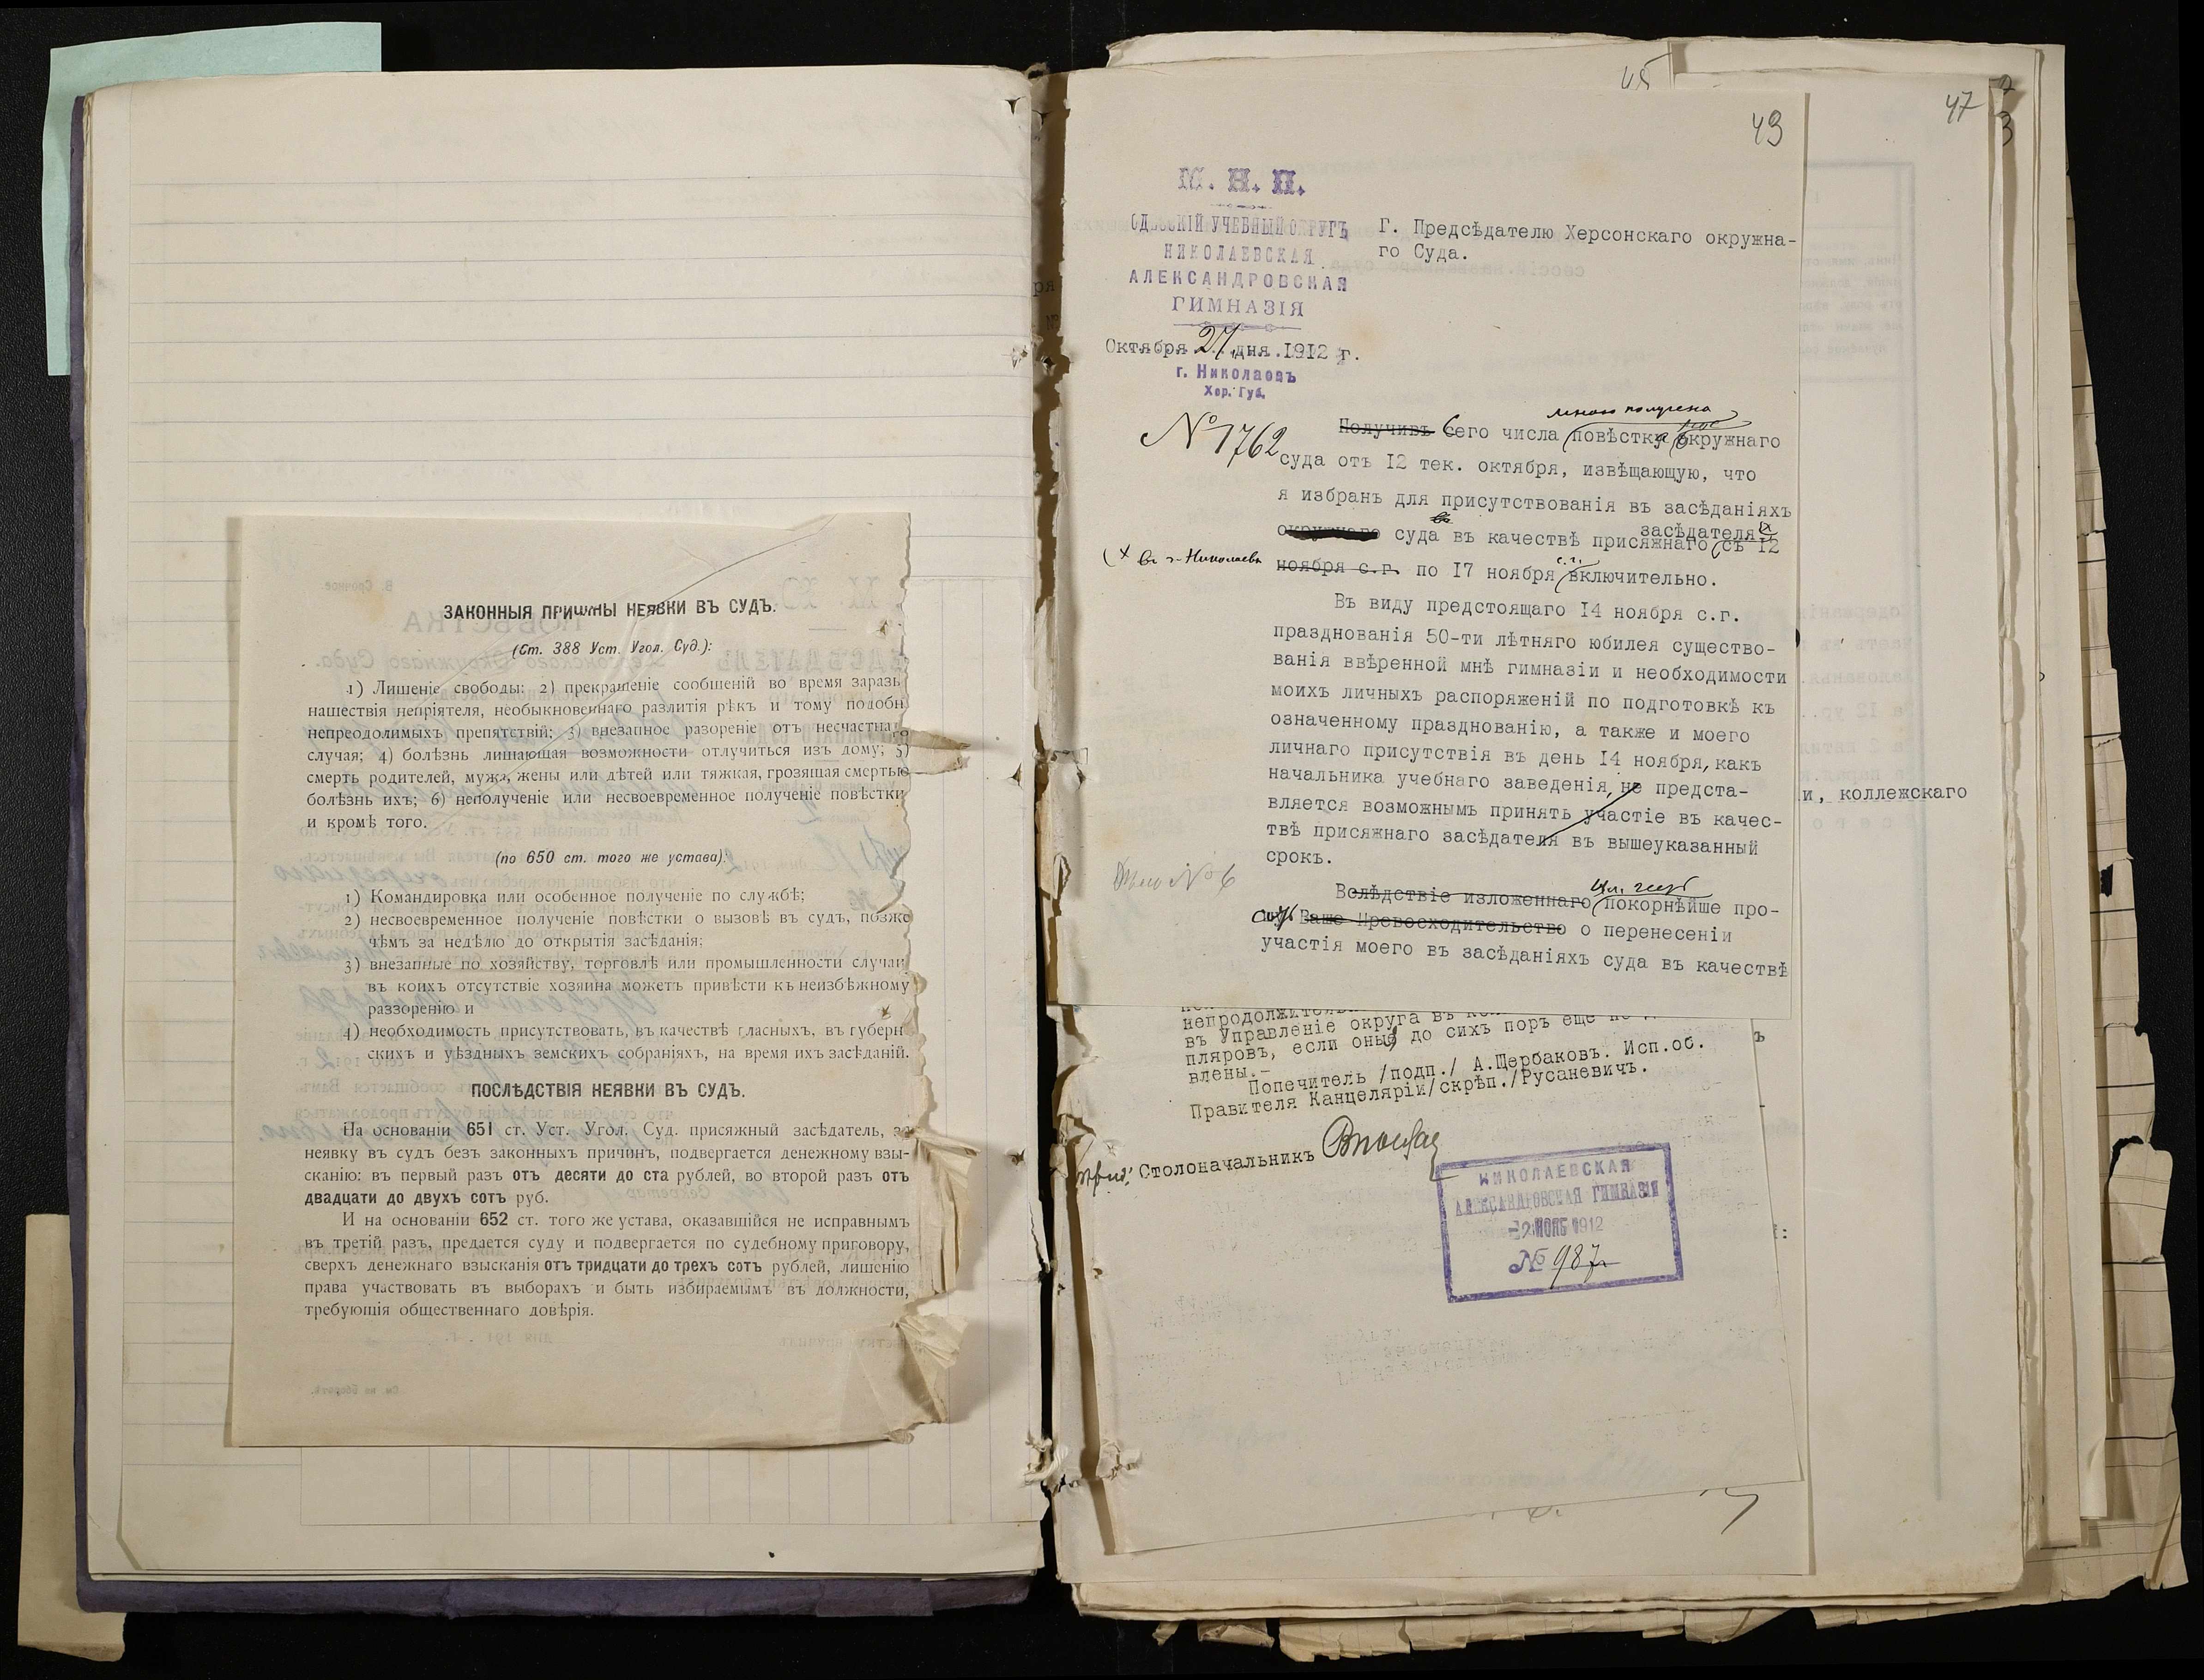 ЗАКОННЫЯ ПРИЧИНЫ НЕЯВКИ ВЪ СУДЪ.
(Ст. 388 Уст. Угол. Суд.):
1) Лишеніе свободы; 2) прекращеніе сообщеній во время заразы
нашествія непріятеля, необыкновеннаго разлитія рѣкъ и тому подобн
непреодолимыхъ препятствій; 3) внезапное разореніе отъ несчастнаго
случая; 4) болѣзнь лишающая возможности отлучиться изъ дому; 5)
смерть родителей, мужа, жены или дѣтей или тяжкая, грозящая смертью
болѣзнь ихъ; 6) неполученіе или несвоевременное полученіе повѣстки
и кромѣ того.
(по 650 ст. того же устава):
1) Командировка или особенное полученіе по службѣ;
2) несвоевременное полученіе повѣстки о вызовѣ въ судъ, позже
чѣмъ за недѣлю до открытія засѣданія;
3) внезапные по хозяйству, торговлѣ или промышленности случаи
въ коихъ отсутствіе хозяина можетъ привести къ неизбѣжному
раззоренію и
4) необходимость присутствовать, въ качествѣ гласныхъ, въ губерн
скихъ и уѣздныхъ земскихъ собраніяхъ, на время ихъ засѣданій.
ПОСЛѢДСТВІЯ НЕЯВКИ ВЪ СУДЪ.
На основаніи 651 ст. Уст. Угол. Суд. присяжный засѣдатель, за
неявку въ судъ безъ законныхъ причинъ, подвергается денежному взы-
сканію: въ первый разъ отъ десяти до ста рублей, во второй разъ отъ
двадцати до двухъ сотъ руб.
И на основаніи 652 ст. того же устава, оказавшійся не исправнымъ
въ третій разъ, предается суду и подвергается по судебному приговору,
сверхъ денежнаго взысканія отъ тридцати до трехъ сотъ рублей, лишенію
права участвовать въ выборахъ и быть избираемымъ въ должности,
требующія общественнаго довѣрія.
45
43
47
М. Н. П.
ОДЕССКІЙ УЧЕБНЫЙ ОКРУГЪ
НИКОЛАЕВСКАЯ
АЛЕКСАНДРОВСКАЯ
ГИМНАЗІЯ
Октября 27 дня 1912 г.
г. Николаевъ
Хер. Губ.
№ 1762
Г. Предсѣдателю Херсонскаго окружна-
го Суда.
мною получена
Получивъ Сего числа повѣстку окружнаго
суда отъ 12 тек. октября, извѣщающую, что
я избранъ для присутствованія въ засѣданіяхъ
окружнаго суда въ качествѣ присяжнаго засѣдателя съ 12
(х въ г. Николаевѣ
ноября с.г. по 17 ноября с.г. включительно.
Въ виду предстоящаго 14 ноября с.г.
празднованія 50-ти лѣтняго юбилея существо-
ванія ввѣренной мнѣ гимназіи и необходимости
моихъ личныхъ распоряженій по подготовкѣ къ
означенному празднованію, а также и моего
личнаго присутствія въ день 14 ноября, какъ
начальника учебнаго заведенія, не предста-
вляется возможнымъ принять участіе въ качес-
твѣ присяжнаго засѣдателя въ вышеуказанный
срокъ.
Дѣло № 6
Вслѣдствіе изложеннаго покорнѣйше про-
Ваше Превосходительство о перенесеніи
участія моего въ засѣданіяхъ суда въ качествѣ
и, коллежскаго
въ Управленіе округа въ
пляровъ, если оные до сихъ поръ еще не
влены.-
Попечитель /подп./ А.Щербаковъ. Исп.об.
Правителя Канцеляріи/скрѣп./Русаневичъ.
Столоначальникъ
НИКОЛАЕВСКАЯ
АЛЕКСАНДРОВСКАЯ ГИМНАЗІЯ
-2 НОЯБ 1912
№ 987